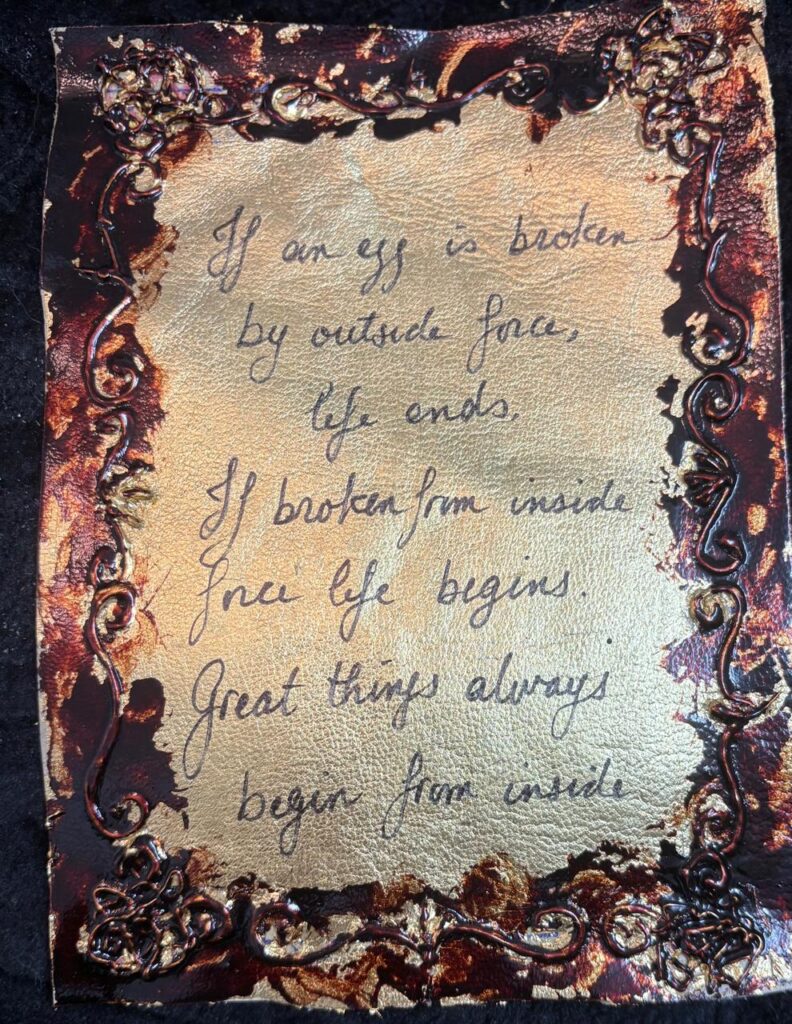 If an egg is broken
by outside force,
life ends.
If broken from inside
force life begins.
Great things always
begin from inside